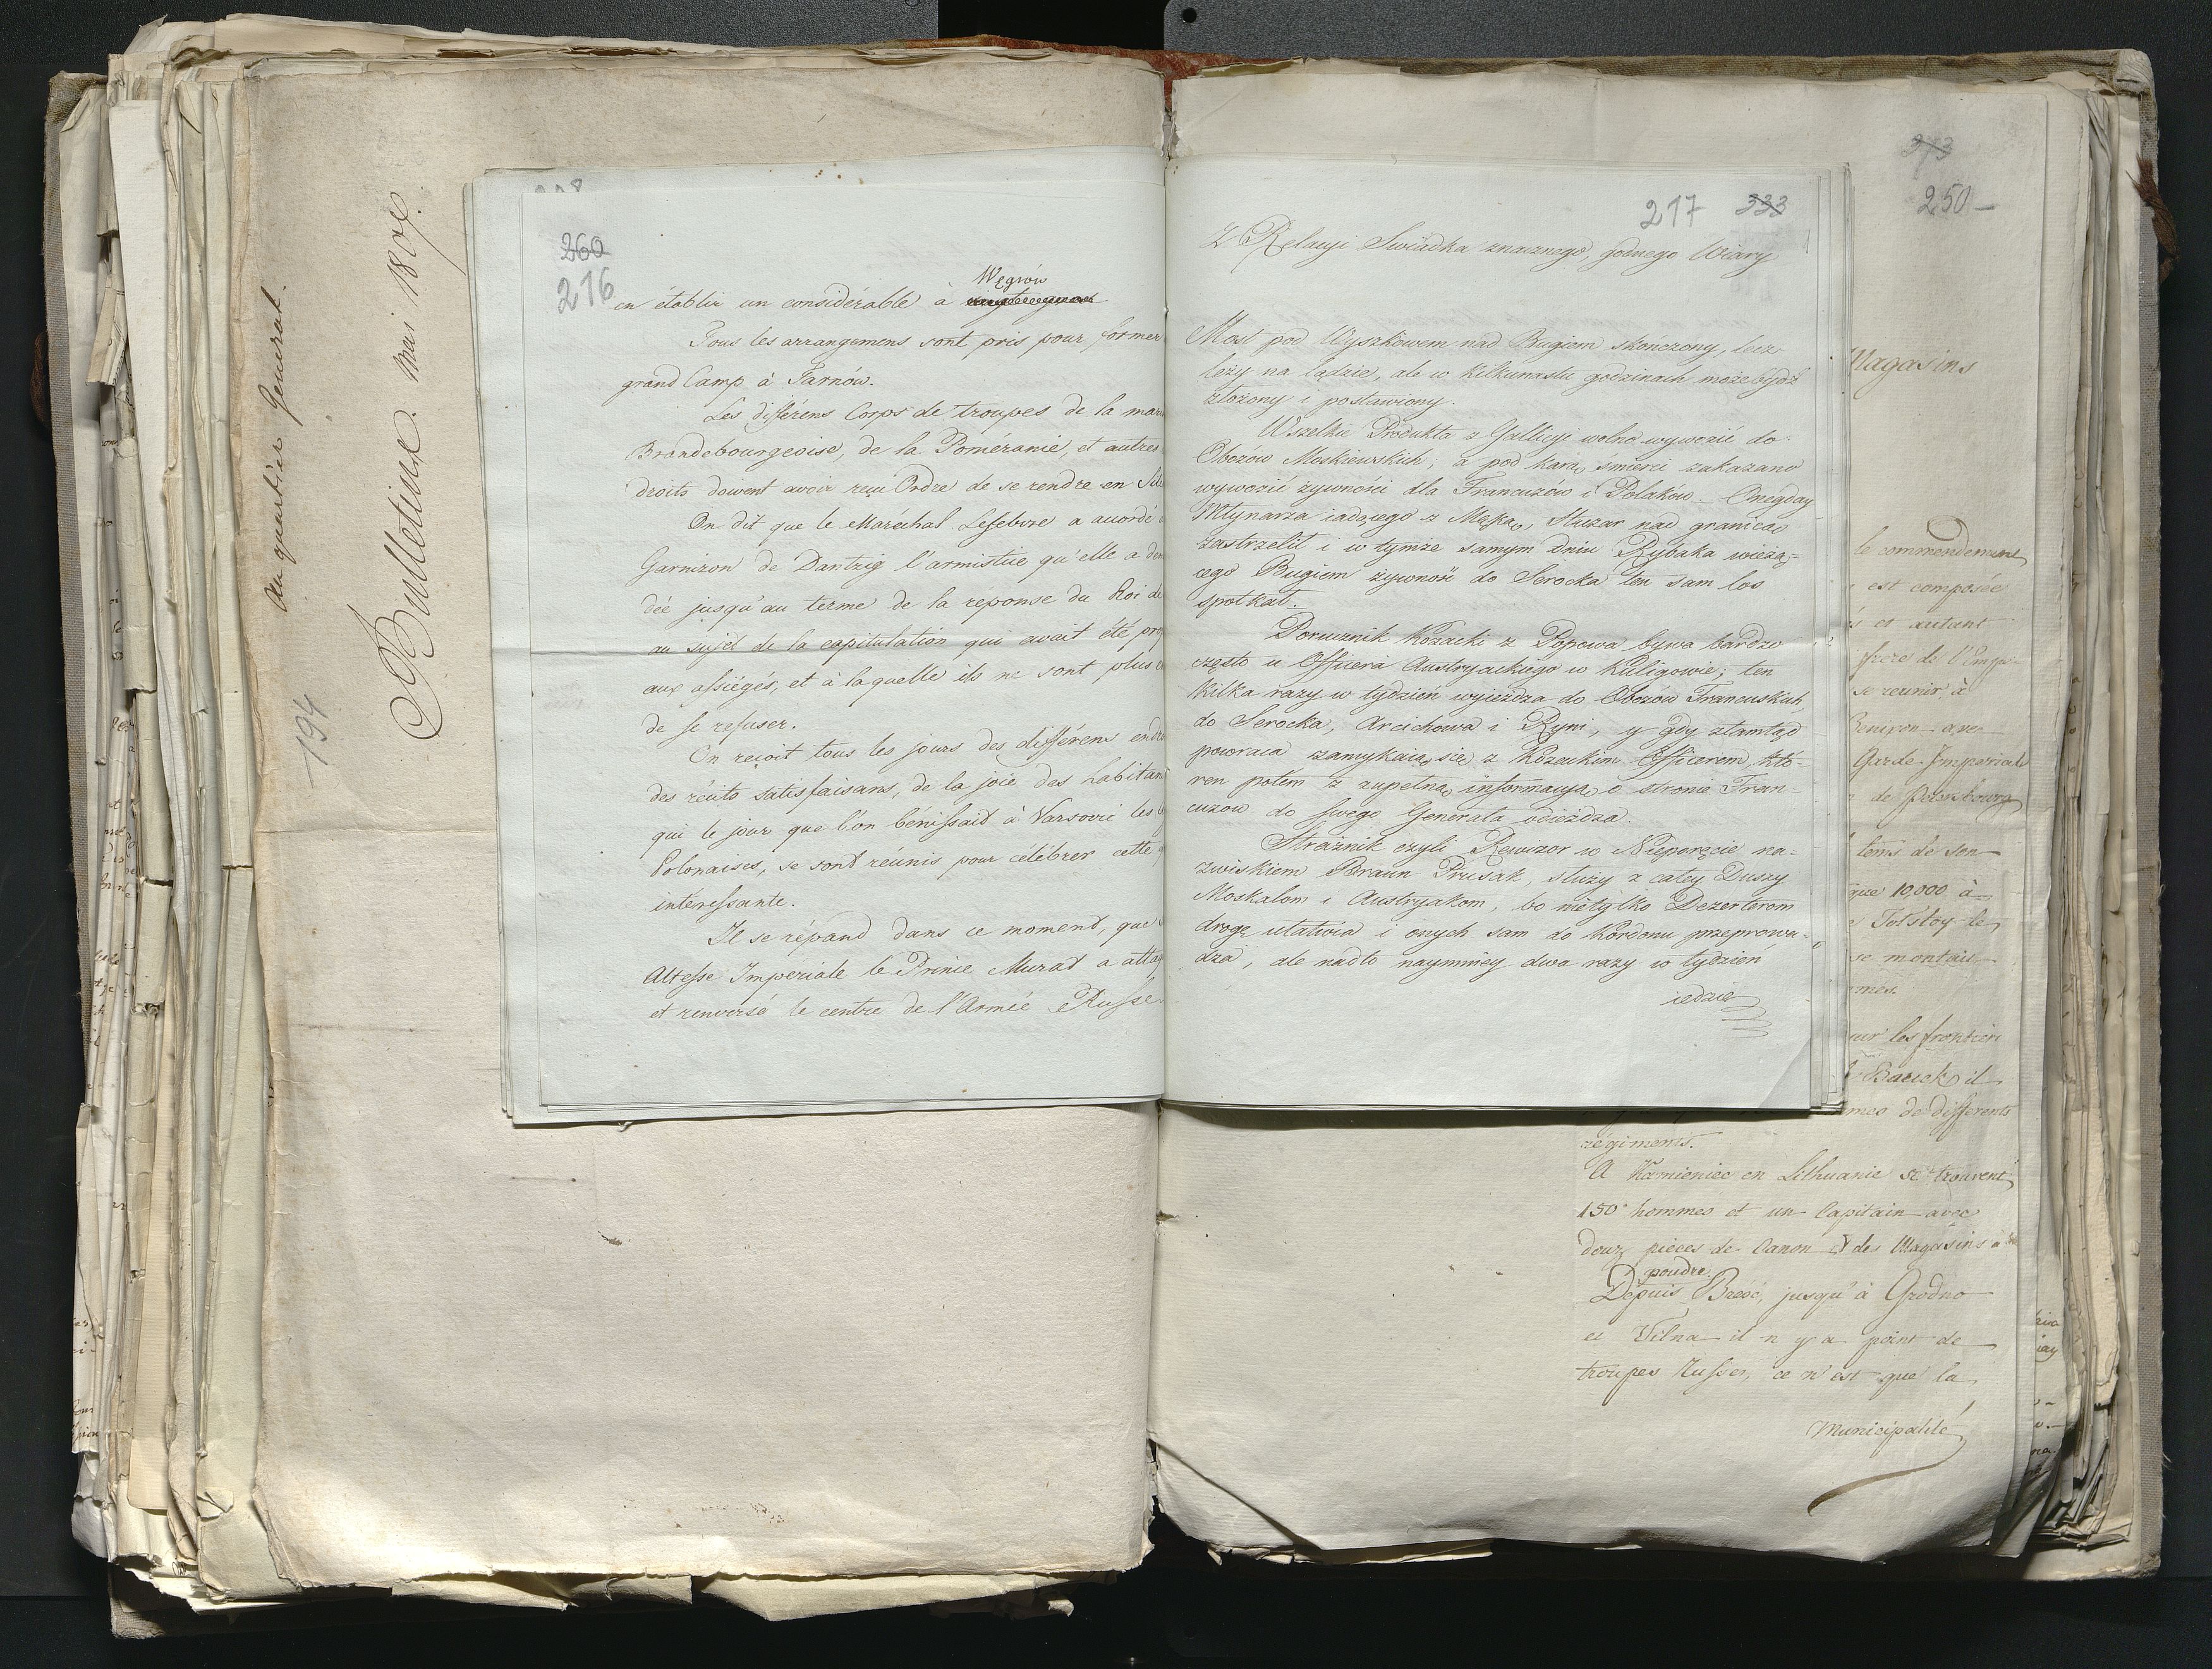 Au quartier General.
194
Bulletins. Mai 1807.
260
216
Węgrów
en établir un considérable à
Tous les arrangemens sont pris pour former
grand Camp à Tarnów.
Les différens Corps de troupes de la
Brandebourgeoise, de la Poméranie, et autres
droits doivent avoir reçu Ordre de se rendre en
On dit que le Maréchal Lefebvre a accordé
Garnizon de Dantzig l'armistice qu'elle a
dée jusqu'au terme de la reponse du Roi de
au sujet de la capitulation qui avait été
aux assiégés, et à laquelle ils ne sont plus
de se refuser.
On reçoit tous les jours des différens
des récits satisfaisans, de la joie des habitan
qui le jour que l'on bénissait à Varsovie les
Polonaises, se sont réunis pour célébrer cette
intéressante.
Il se répand dans ce moment, que
Altesse Imperiale le Prince Murat a
et renversé le centre de l'Armée Russe
217 333
Z Relacyi Swiadka znacznego, godnego Wiary
Most pod Wyszkowem nad Bugiem skończony, lecz
leży na lądzie, ale w kilkunastu godzinach może bydź
złożony i postawiony.
Wszelkie Produkta z Gallicyi wolno wywozić do
Obozów Moskiewskich; a pod karą śmierci zakazano
wywozić żywności dla Francuzów i Polaków. Onegday
Młynarza iadącego z Mąką, Huzar nad granicą
zastrzelił i w tymże samym dniu Rybaka wiozą-
cego Bugiem żywność do Serocka ten sam los
spotkał.
Porucznik Kozacki z Popowa bywa bardzo
często u Officera Austryackiego w Kuligowie; ten
kilka razy w tydzień wyieżdża do Obozów Francuskich
do Serocka, Arciechowa i Ryni, y gdy ztamtąd
powraca zamykaią się z Kozackim Officerem, któ-
ren potem z zupełną informacyą o stronie Fran-
cuzow do swego Generała odieżdża.
Strażnik czyli Rewizor w Nieporęcie na-
zwiskiem Braun Prusak, służy z całey Duszy
Moskalom i Austryakom, bo nietylko Dezerterom
drogę ułatwia i onych sam do Kordonu przeprowa-
dza, ale nadto naymniey dwa razy w tydzień
iedzie
273
250
Magasins
le commendement
est composée
et autant
frere de l'Empe
se reunir à
Garde Imperiale
de Petersbourg
tems de son
10,000 à
Tolstoy le
se montait
mes.
sur les frontieri
il
mes de differents
régiments.
A Kamieniec en Lithuanie se trouvent
150 hommes et un Capitain avec
douz pieces de Canon et des Magasins à
poudre.
Depuis Brześć, jusqu'à Grodno
et Vilna il n'y a point de
troupes Russes, ce n'est que la
Municipalité